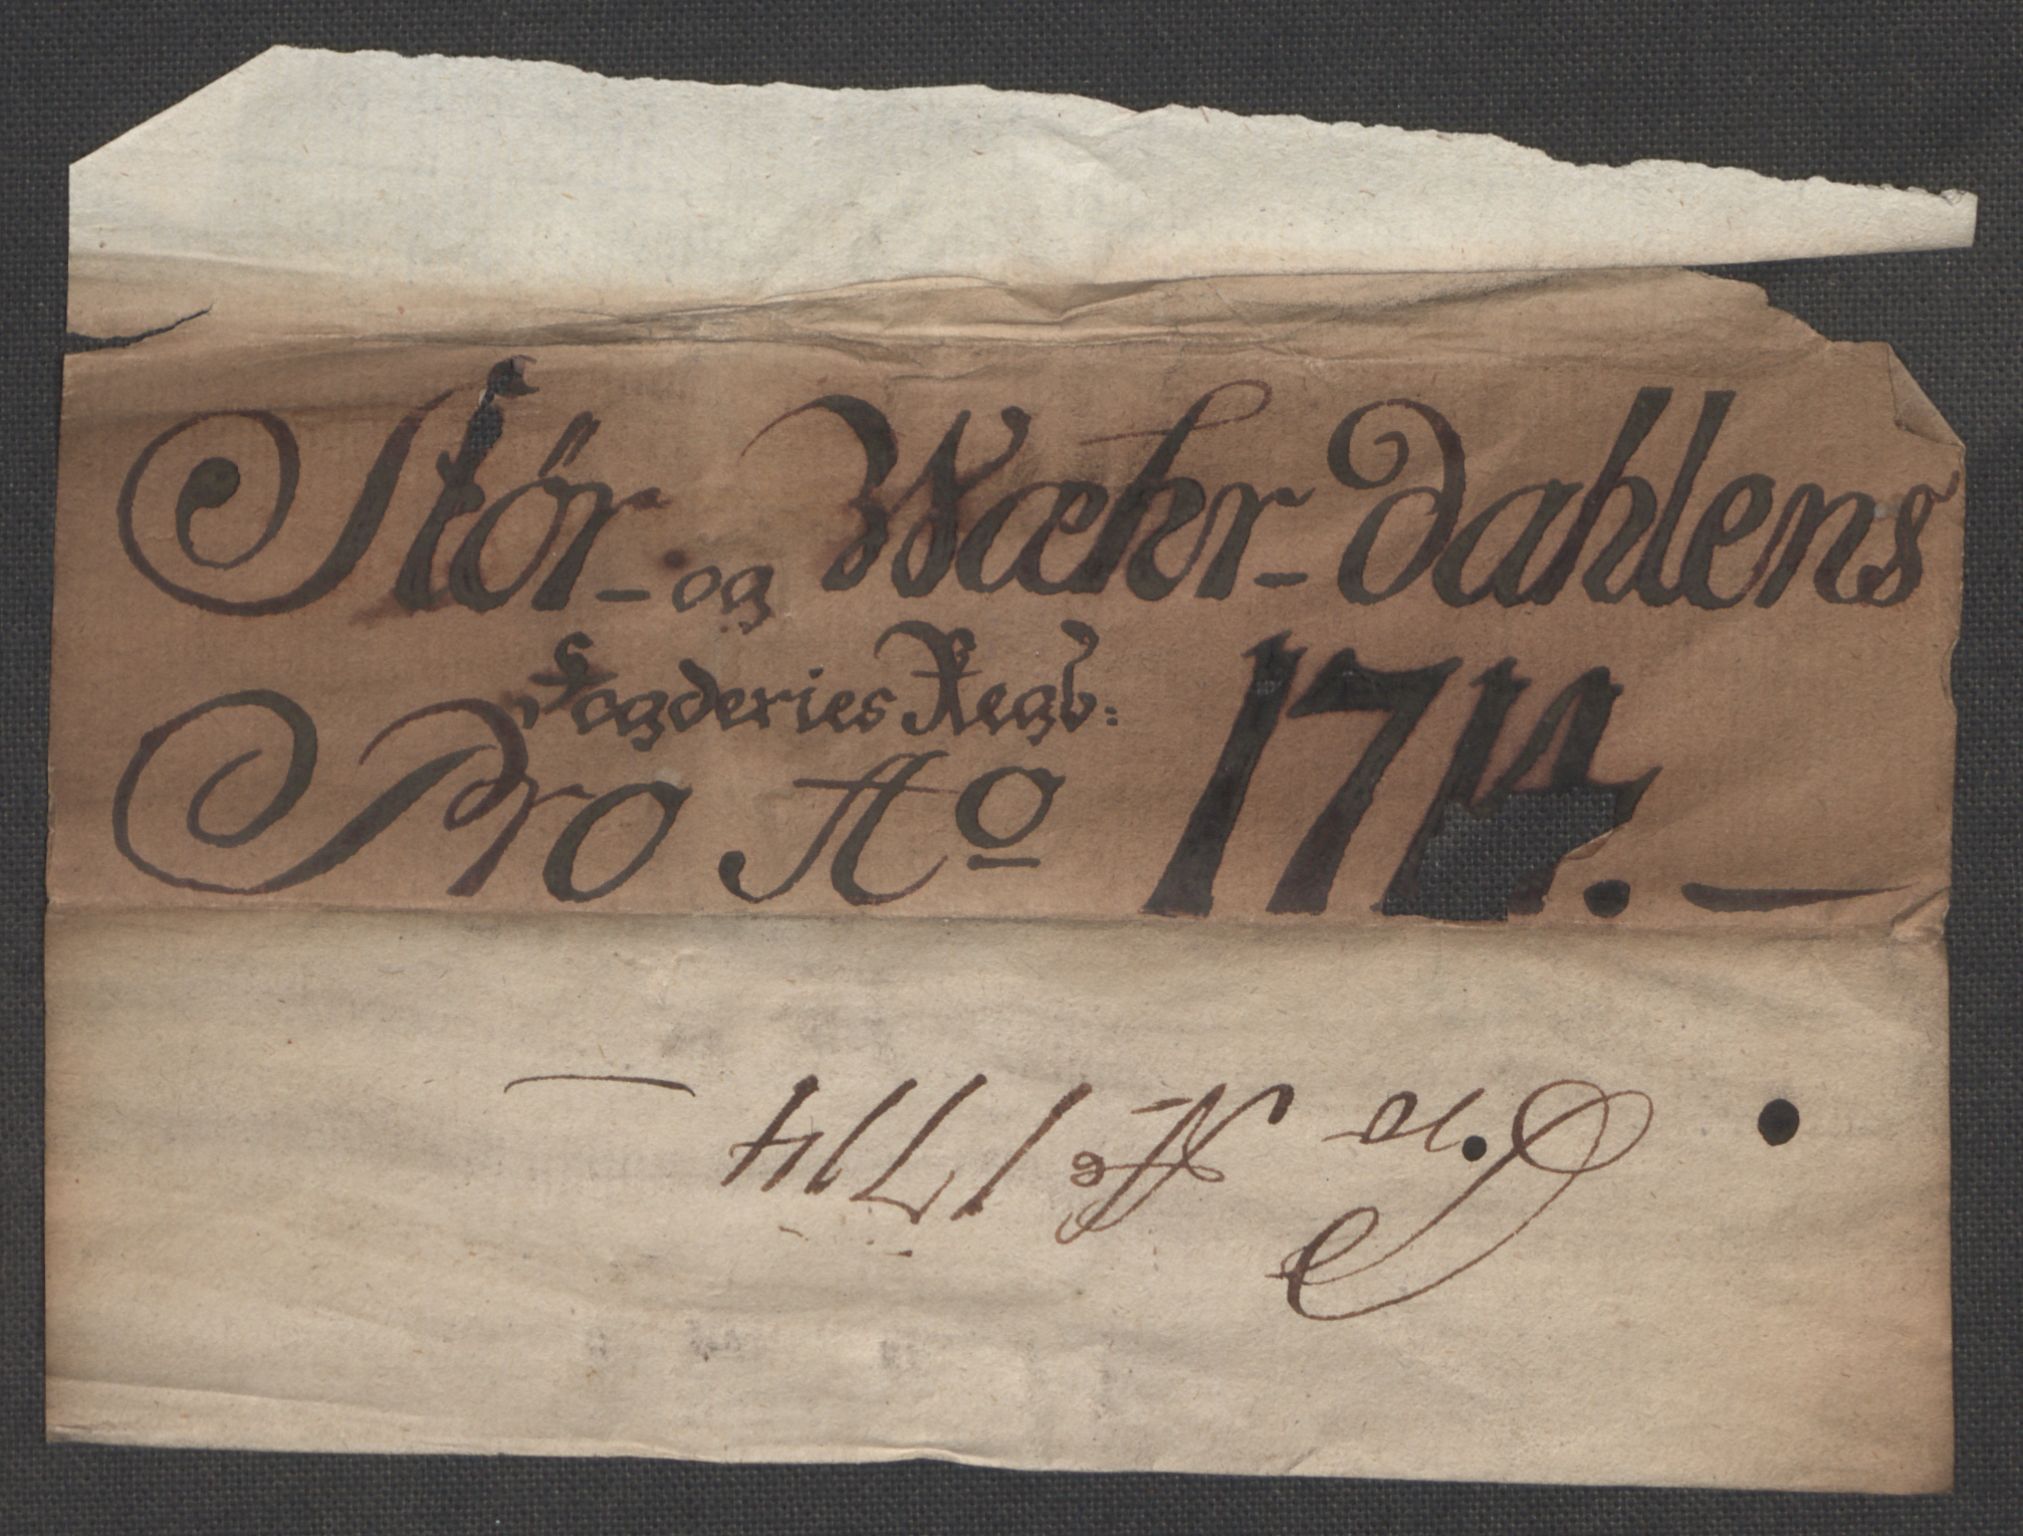 Stør- og Wæhr-dahlens
Fogderies Regb:
Pro Aº 1714.
Pro Aº 1714